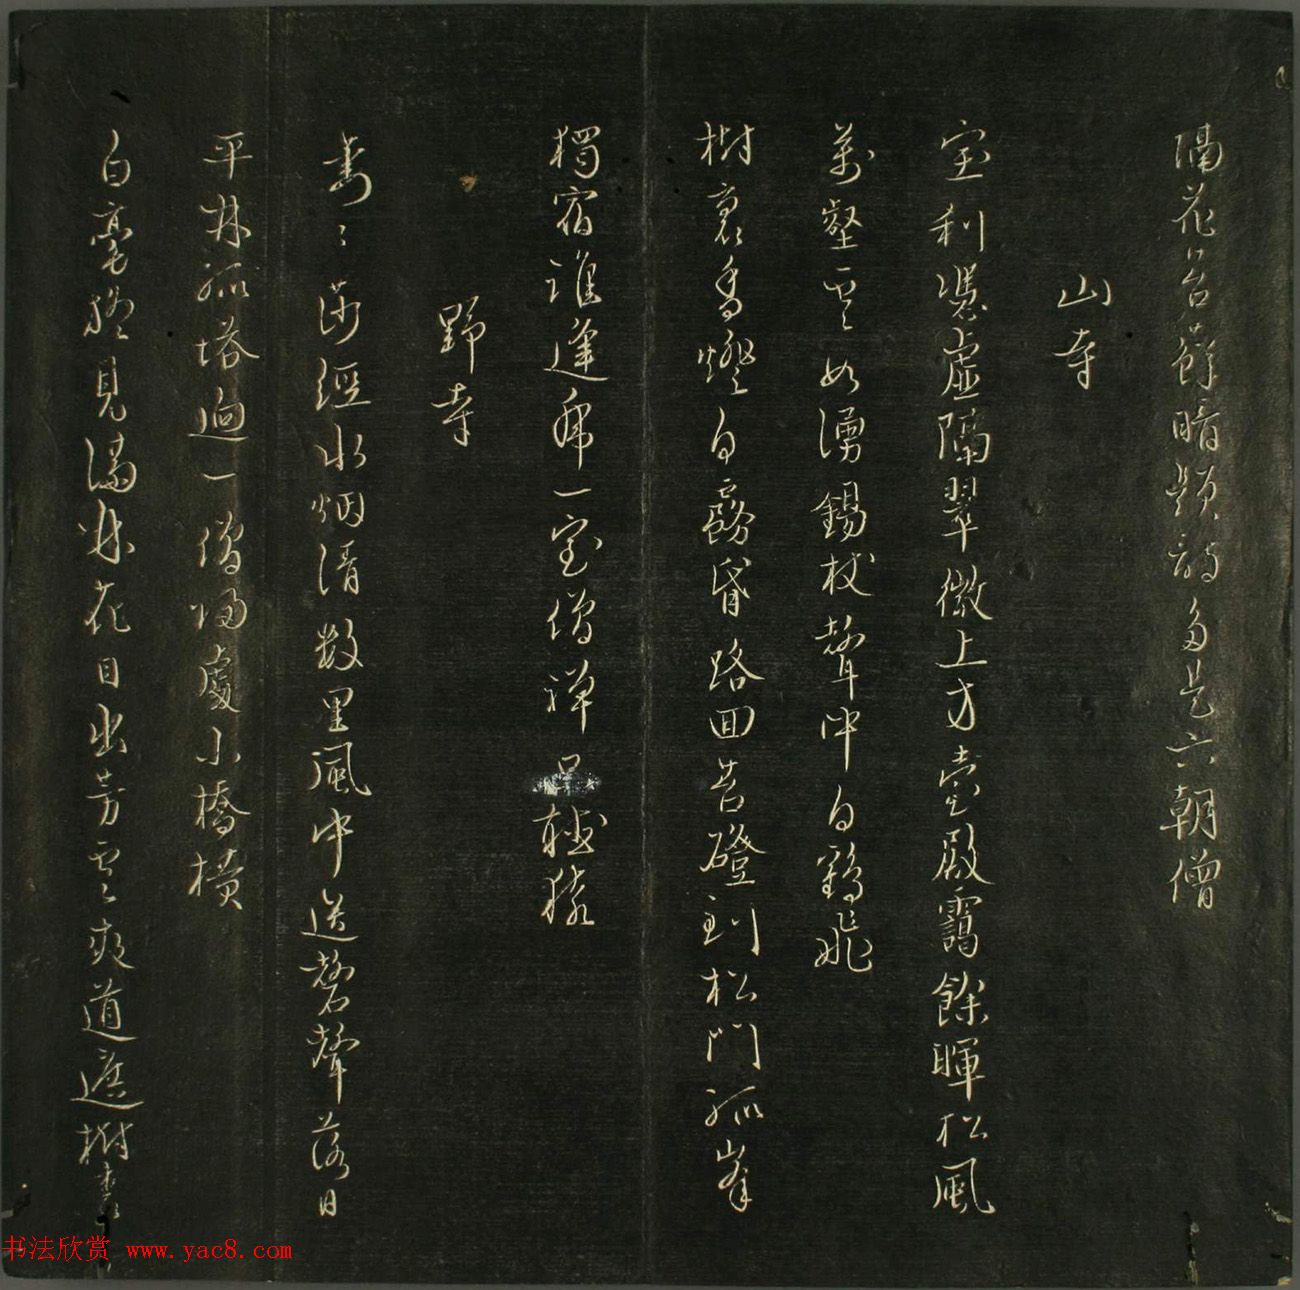 隔花苔蘚暗題詩多是六朝僧
山寺
寶刹憑虛隔翠微上方臺殿靄餘暉松風
萬壑雲如湧錫杖聲中白鶴飛
樹裏香燈白露昏路回苔磴到松門孤峯
獨宿誰逢虎一室僧禪只聽猿
野寺
莎經水烟清數里風中送磬聲落日
平林孤塔迥一僧歸處小橋橫
白毫纔見滿林花目出芳雲夾道遮樹裏
书法欣赏 www.yac8.com